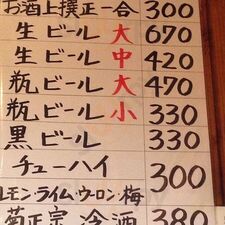 お酒上撰正一合 300
生ビール大 670
生ビール中 420
瓶ビール大 470
瓶ビール小 330
黒ビール 330
チューハイ 300
レモン・ライム・ウーロン・梅
菊正宗 冷酒 380